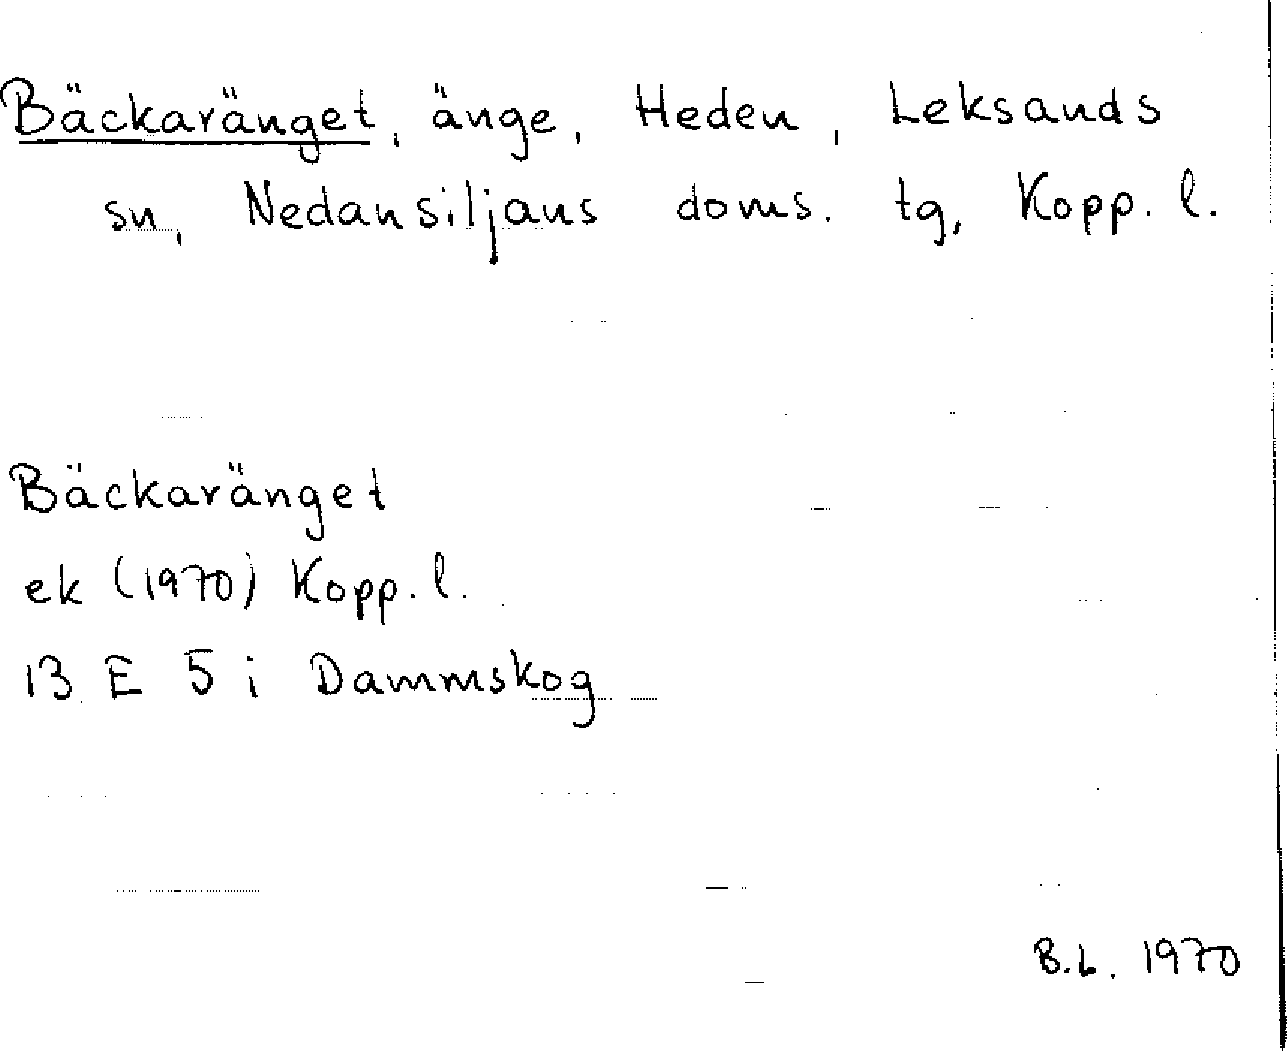 Bäckaränget, änge, Heden, Leksands
sn, Nedansiljans doms. tg, Kopp. l.
Bäckaränget
ek (1970) Kopp. l.
13 E 5 i Dammskog
B.L. 1970